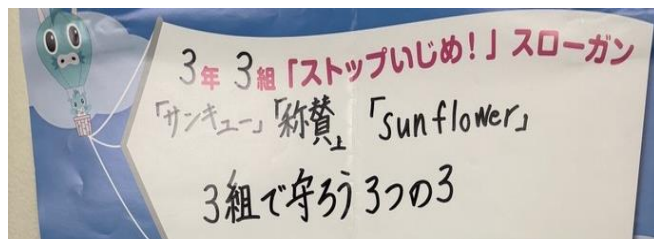 3年 3組「ストップいじめ！」スローガン
「サンキュー」「称賛」「sunflower」
3組で守ろう3つの3